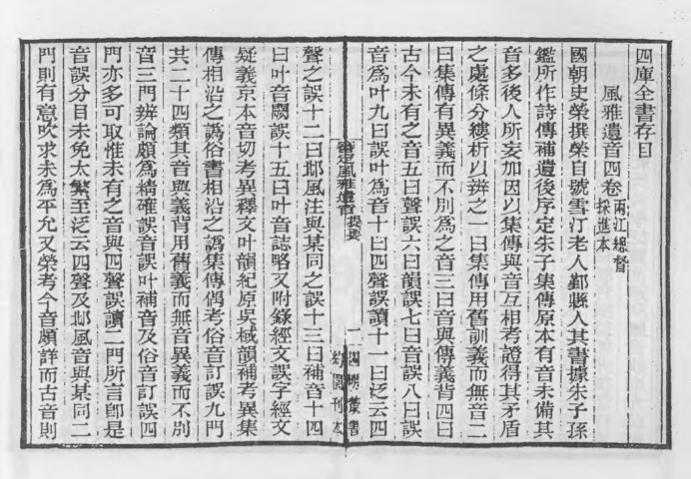 四庫全書存目
風雅遺音四卷兩江總督採進本
國朝史榮撰榮自號雪汀老人鄞縣人其書據朱子孫
鑑所作詩傳補遺後序定朱子集傳原本有音未備其
音多後人所妄加因以集傳與音互相考證得其矛盾
之處條分縷析以辨之一曰集傳用舊訓義而無音二
曰集傳有異義而不別為之音三曰音與傳義背四曰
古今未有之音五曰聲誤六曰韻誤七曰音誤八曰誤
音爲叶九曰誤叶爲音十曰四聲誤讀十一曰泛云四
審定風雅遺音 提要 一 四明叢書 約園刊本
聲之誤十二曰邶風注與某同之誤十三曰補音十四
曰叶音闕誤十五曰叶音誌略又附錄經文誤字經文
疑義京本音切考異釋文叶韻紀原吳棫韻補考異集
傳相沿之譌俗書相沿之譌集傳偶考俗音訂誤九門
其二十四類其音與義背用舊義而無音異義而不別
音三門辨論頗爲精確誤音誤叶補音及俗音訂誤四
門亦多可取惟未有之音與四聲誤讀二門所言卽是
音誤分目未免太繁至泛云四聲及邶風音與某同二
門則有意吹求未爲平允又榮考今音頗詳而古音則